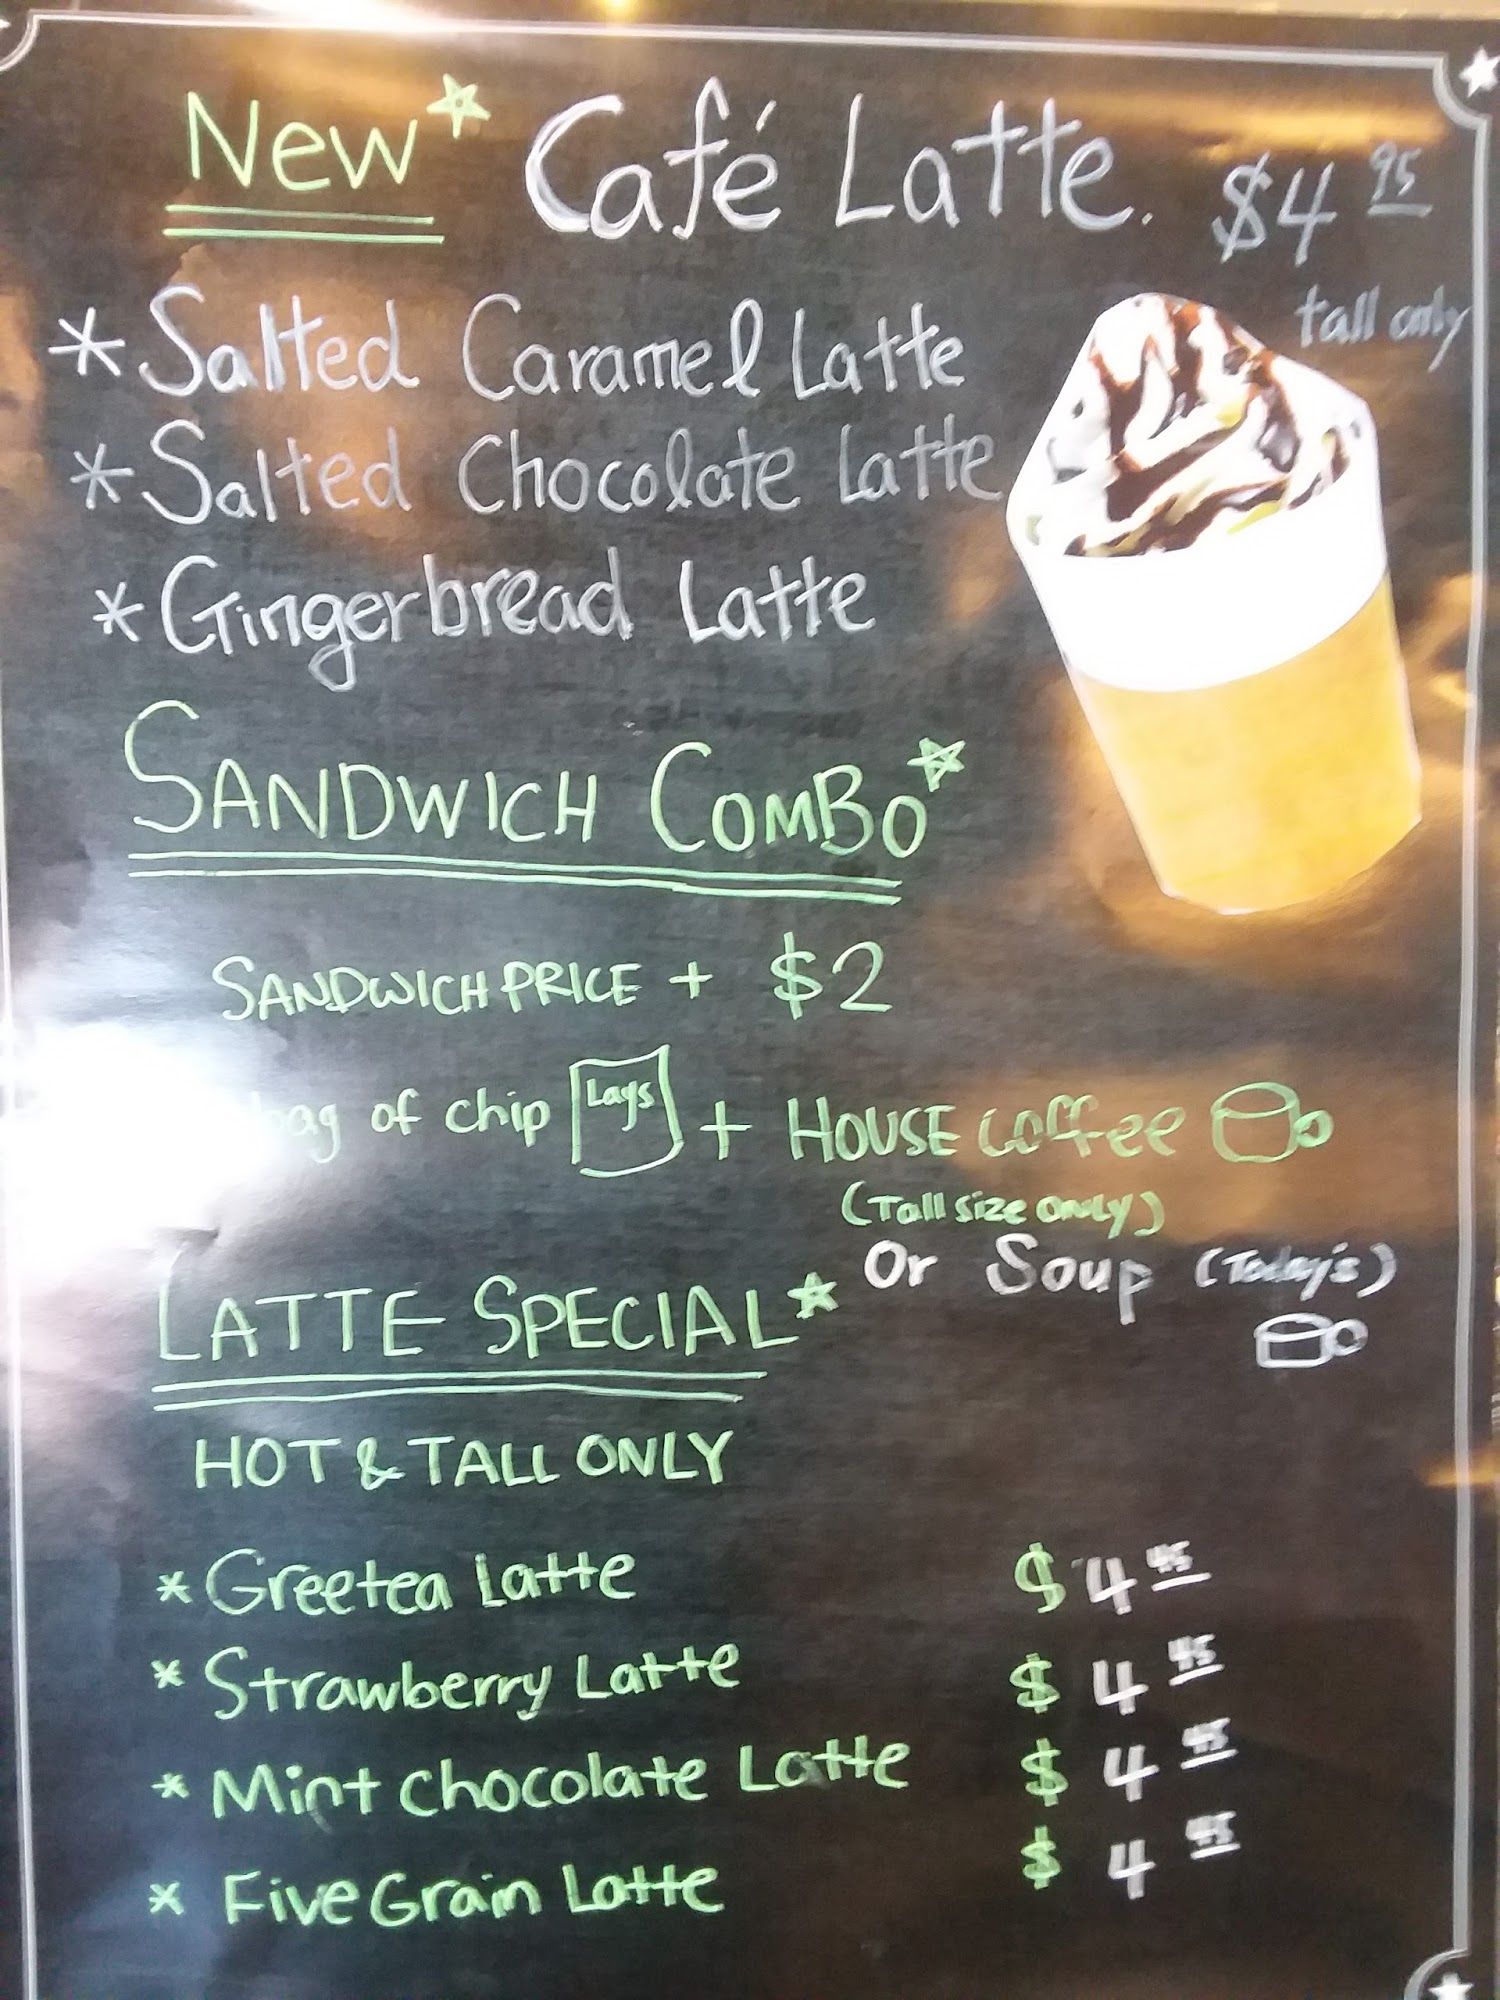 New Café Latte. $4 95
tall only
* Salted Caramel Latte
* Salted Chocolate Latte
* Gingerbread Latte
SANDWICH COMBO
SANDWICH PRICE + $2
bag of chip Lays + HOUSE Coffee
(Tall size only)
Or Soup (Today's)
LATTE SPECIAL
HOT & TALL ONLY
* Greetea Latte $4 45
* Strawberry Latte $4 45
* Mint chocolate Latte $4 45
* Five Grain Latte $4 45